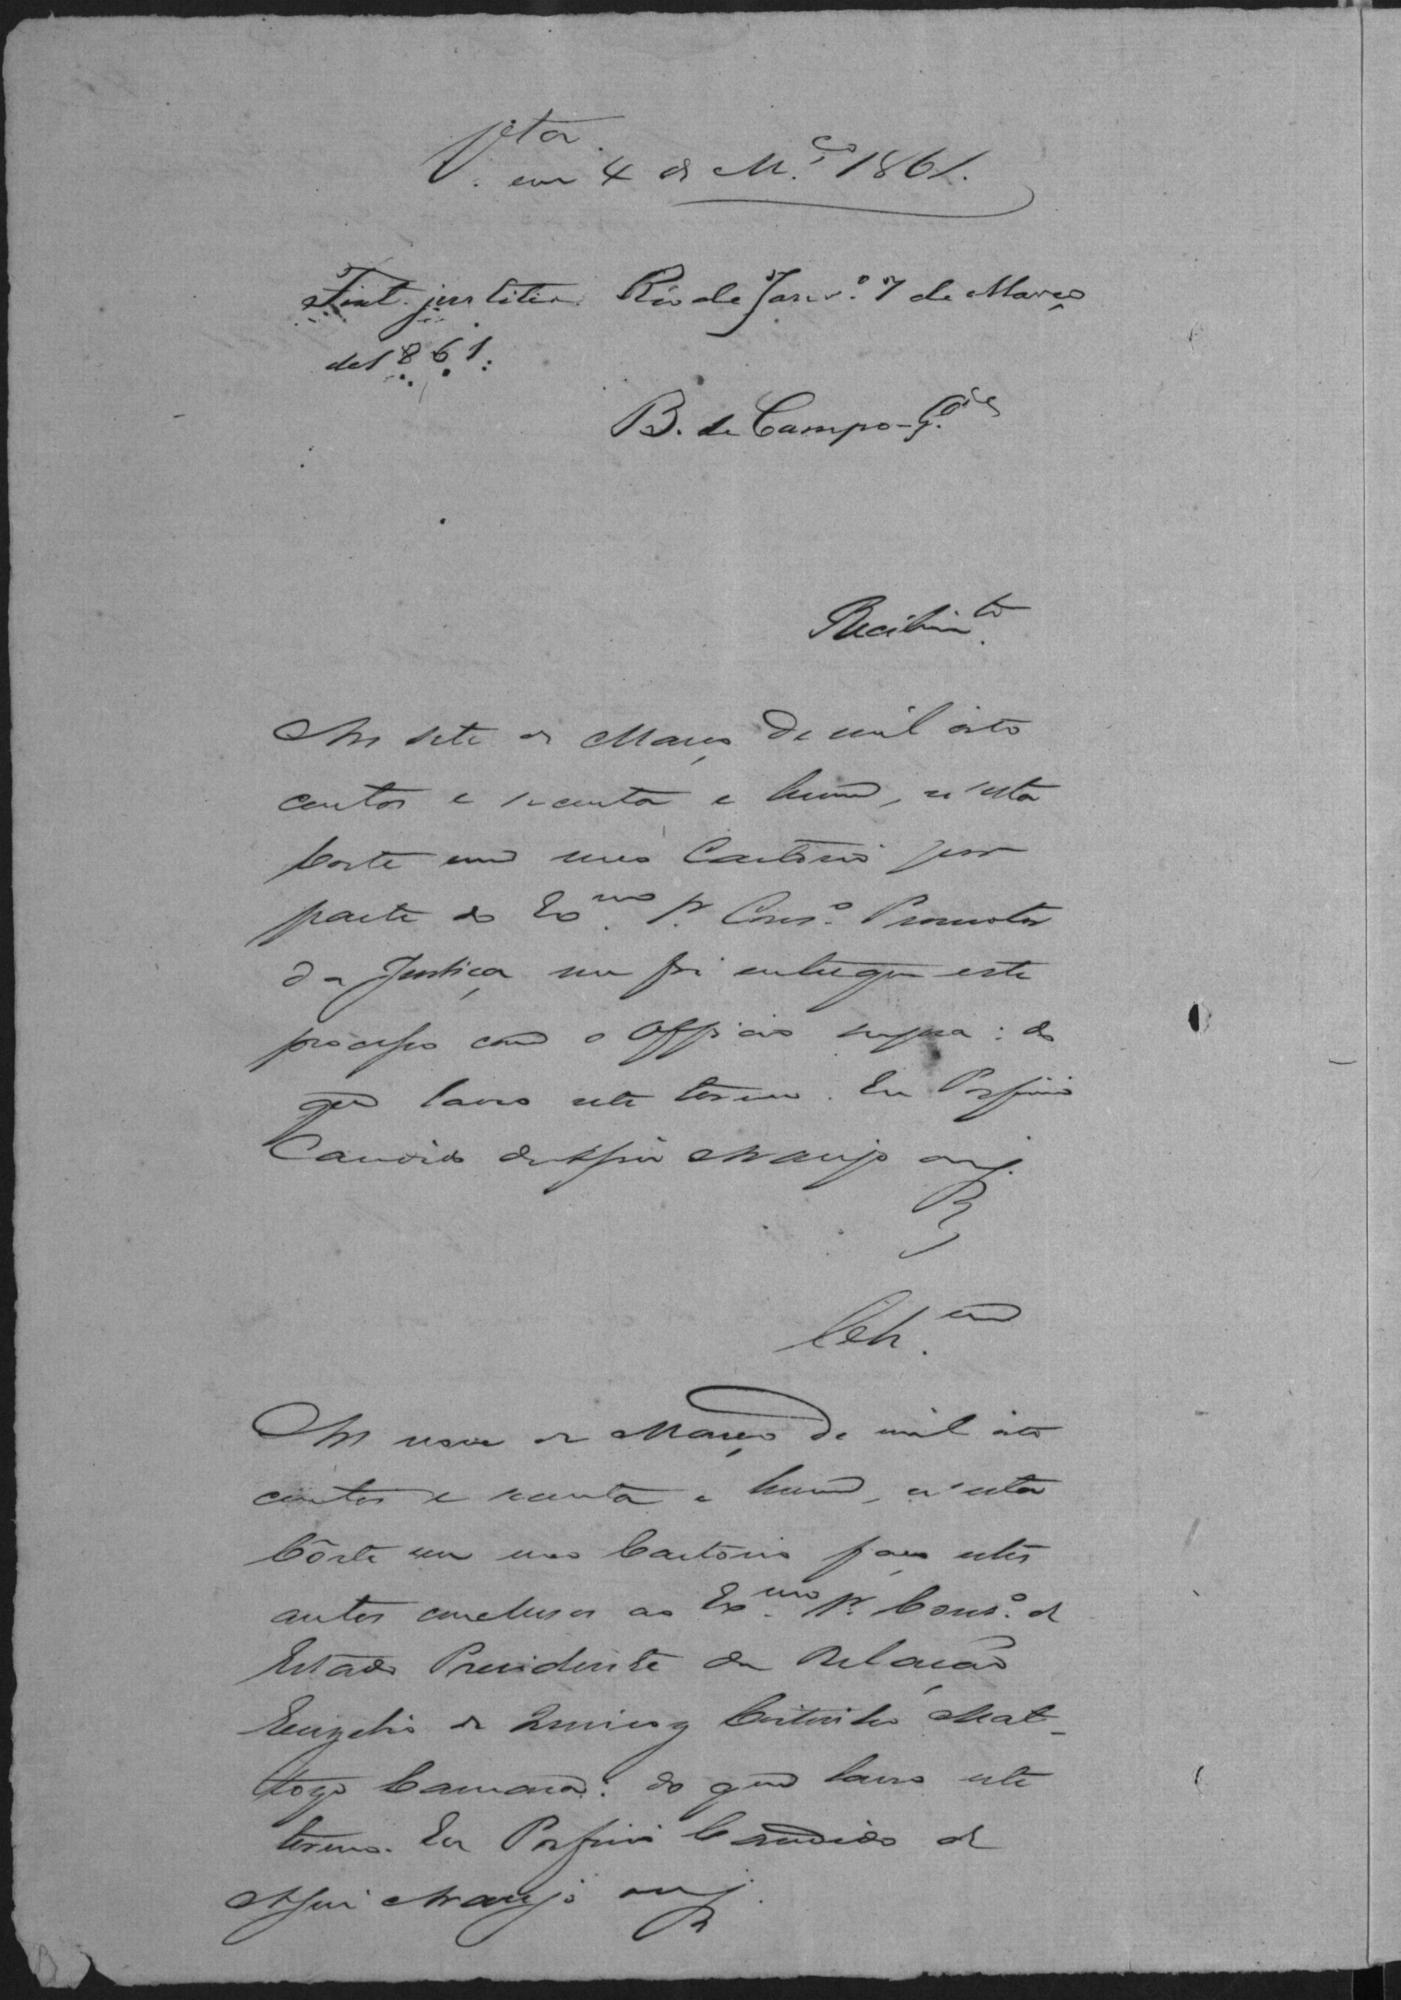 V.ta
em 4 de M.ço 1861.
Fiat justitia Rio de Janr.º 7 de Março
de 1861.
B. de Campo-G.de
Recebim.to
Aos sete de Março de mil oito
centos e secenta e hum, n'esta
Corte em meu Cartorio por
parte do Ex.mo Sr. Cons.º Promotor
da Justiça me foi entregue este
processo com o Officio supra: do
que lavro este termo. Eu Porfirio
Candido de Assis Araujo
Cch.am
Aos nove de Março de mil oito
centos e secenta e hum, n'esta
Côrte em meu Cartorio faço estes
autos conclusos ao Ex.mo Sr. Cons.º de
Estado Presidente da Relação
Euzebio de Queiroz Coutinho Mat-
tozo Camara: do que lavro este
termo. Eu Porfirio Candido de
Assis Araujo